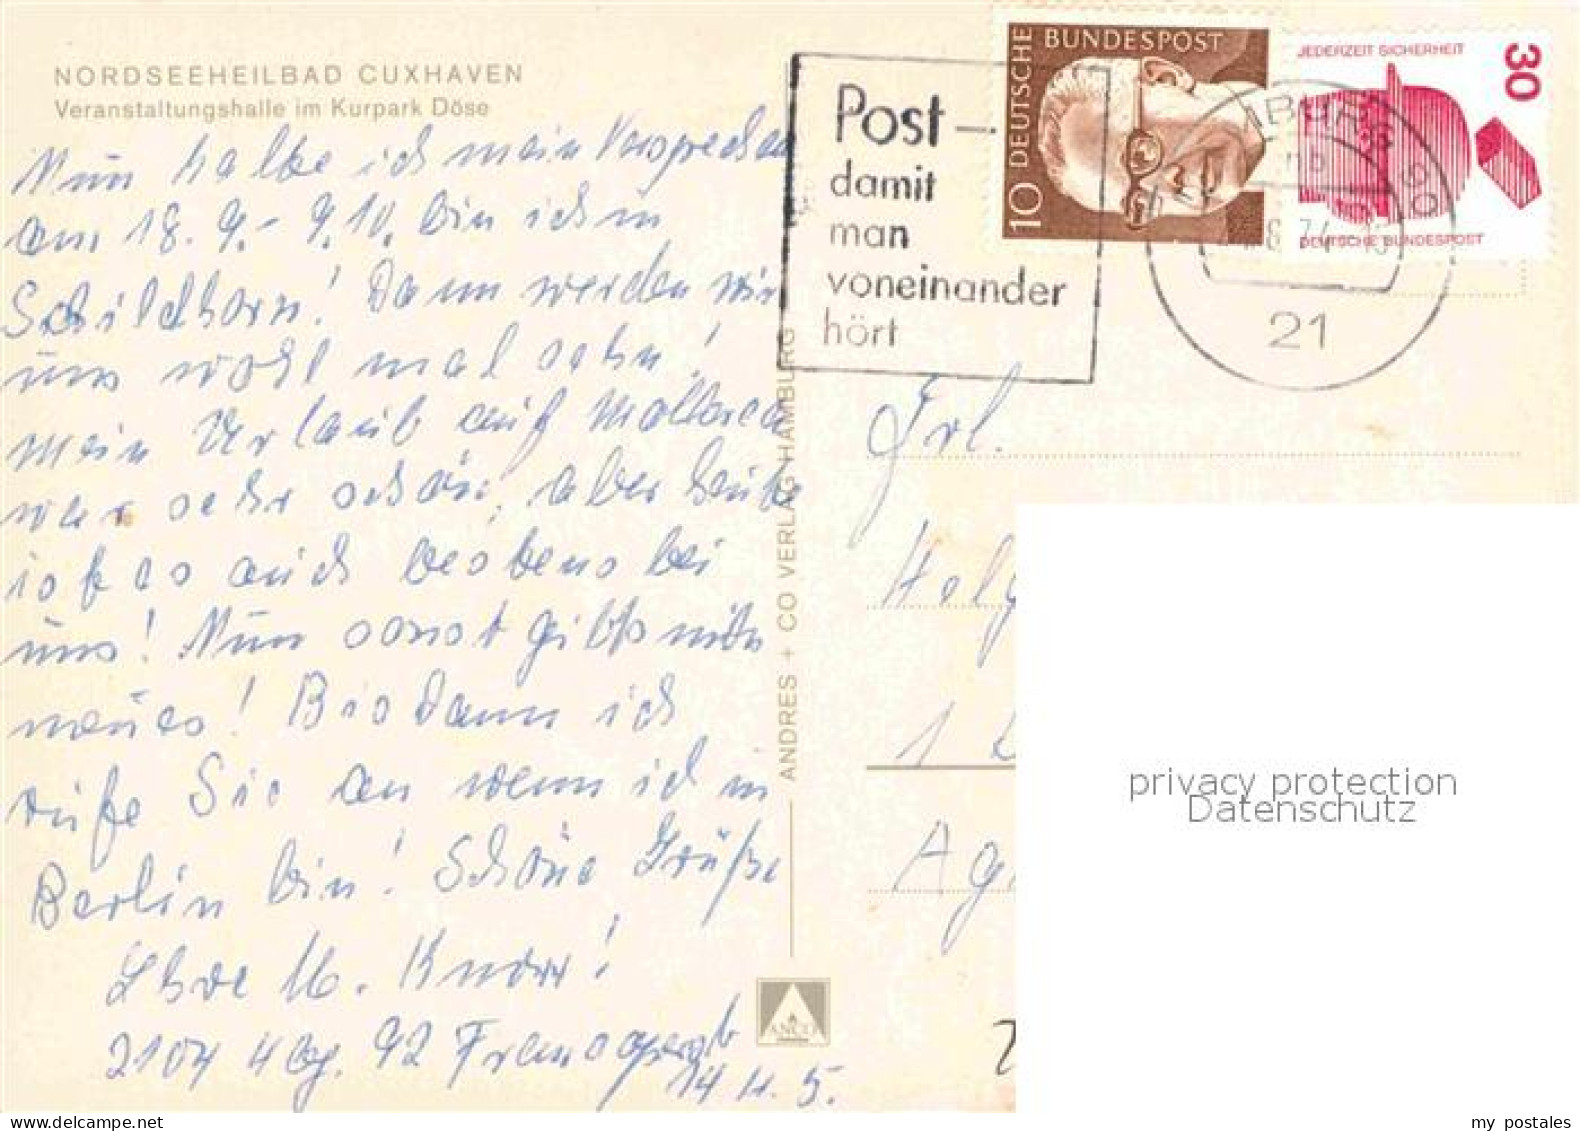 NORDSEEHEILBAD CUXHAVEN
Veranstaltungshalle im Kurpark Döse
Nun halte ich mein Versprechen
am 18. 9.- 9.10. bin ich in
Schildhorn! Dann werden wir
uns wohl mal sehn!
Mein Urlaub auf Mallorca
war sehr schön, aber heute
ist es auch bestens bei
uns! Nun sonst gibts nichts
neues! Bis dann ich
rufe Sie an wenn ich in
Berlin bin! Schöne Grüße
Ihre M. Knorr!
2104 Hbg. 92
14 II. 5.
ANDRES + CO VERLAG HAMBURG
ANCO
Post –
damit
man
voneinander
hört
DEUTSCHE BUNDESPOST
10
JEDERZEIT SICHERHEIT
30
DEUTSCHE BUNDESPOST
21
Frl.
Helg
1
Ag
privacy protection
Datenschutz
my postales